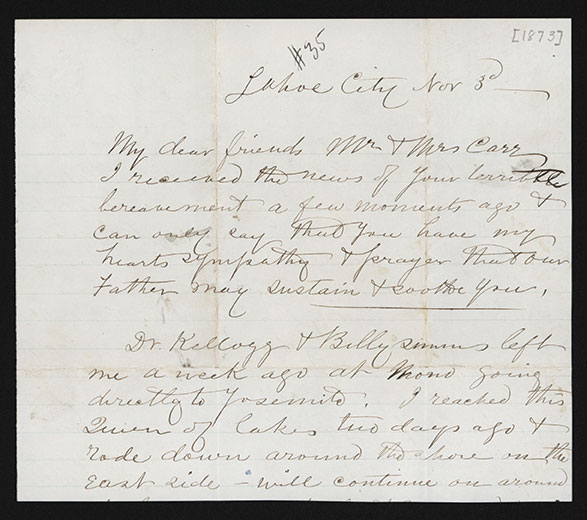 [1873]
#35
Tahoe City Nov 3d
My dear friends Mr & Mrs Carr
I received the news of your terrible
bereavement a few moments ago &
can only say that you have my
hearts sympathy & prayer that our
Father may sustain & soothe you.
Dr. Kellogg & Billy simms left
me a week ago at Mono going
directly to Yosemite. I reached this
Queen of lakes two days ago &
rode down around the shore on the
East side – will continue on around